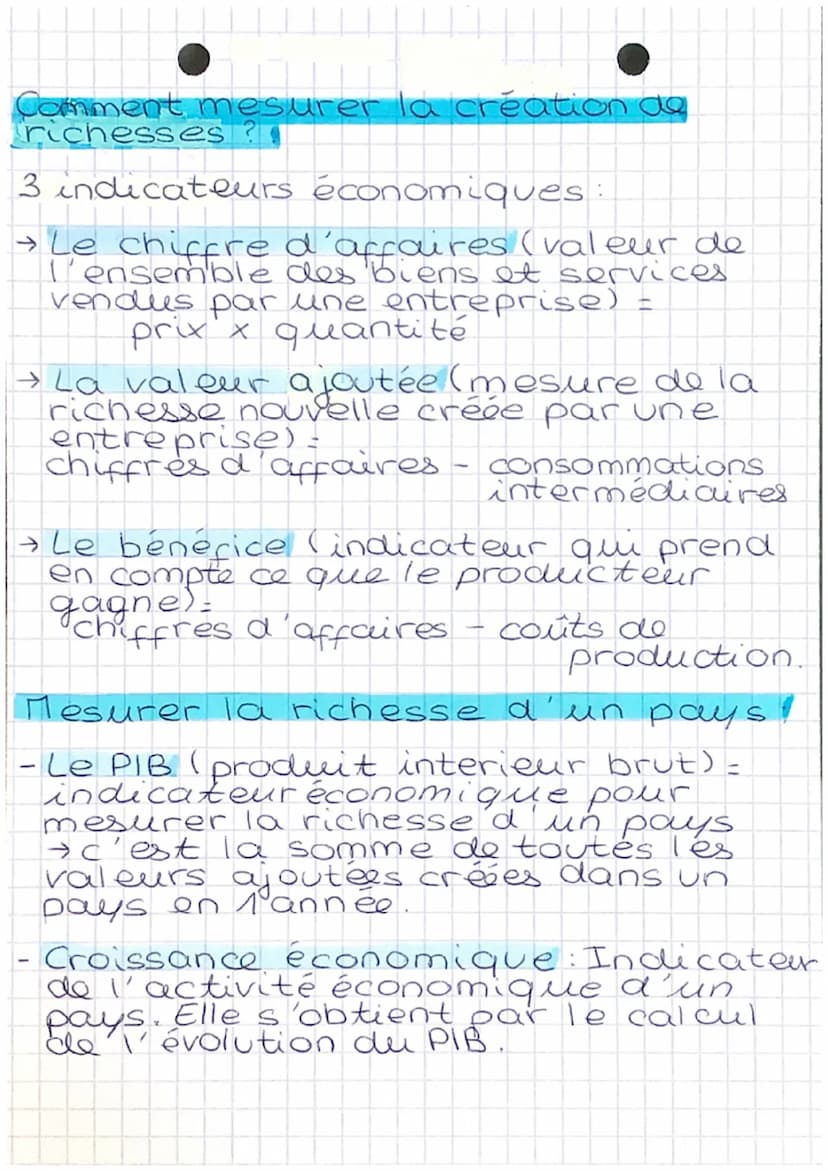 Comment mesurer la création de
richesses ?
3 indicateurs économiques :
→ Le chiffre d'affaires (valeur de
l'ensemble des biens et services
vendus par une entreprise) =
prix x quantité
→ La valeur ajoutée (mesure de la
richesse nouvelle créée par une
entreprise) =
chiffres d'affaires - consommations
intermédiaires
→ Le bénéfice (indicateur qui prend
en compte ce que le producteur
gagne) =
chiffres d'affaires - coûts de
production.
Mesurer la richesse d'un pays !
- Le PIB (produit interieur brut) =
indicateur économique pour
mesurer la richesse d'un pays
→ c'est la somme de toutes les
valeurs ajoutées créées dans un
pays en 1 année.
- Croissance économique : Indicateur
de l'activité économique d'un
pays. Elle s'obtient par le calcul
de l'évolution du PIB.